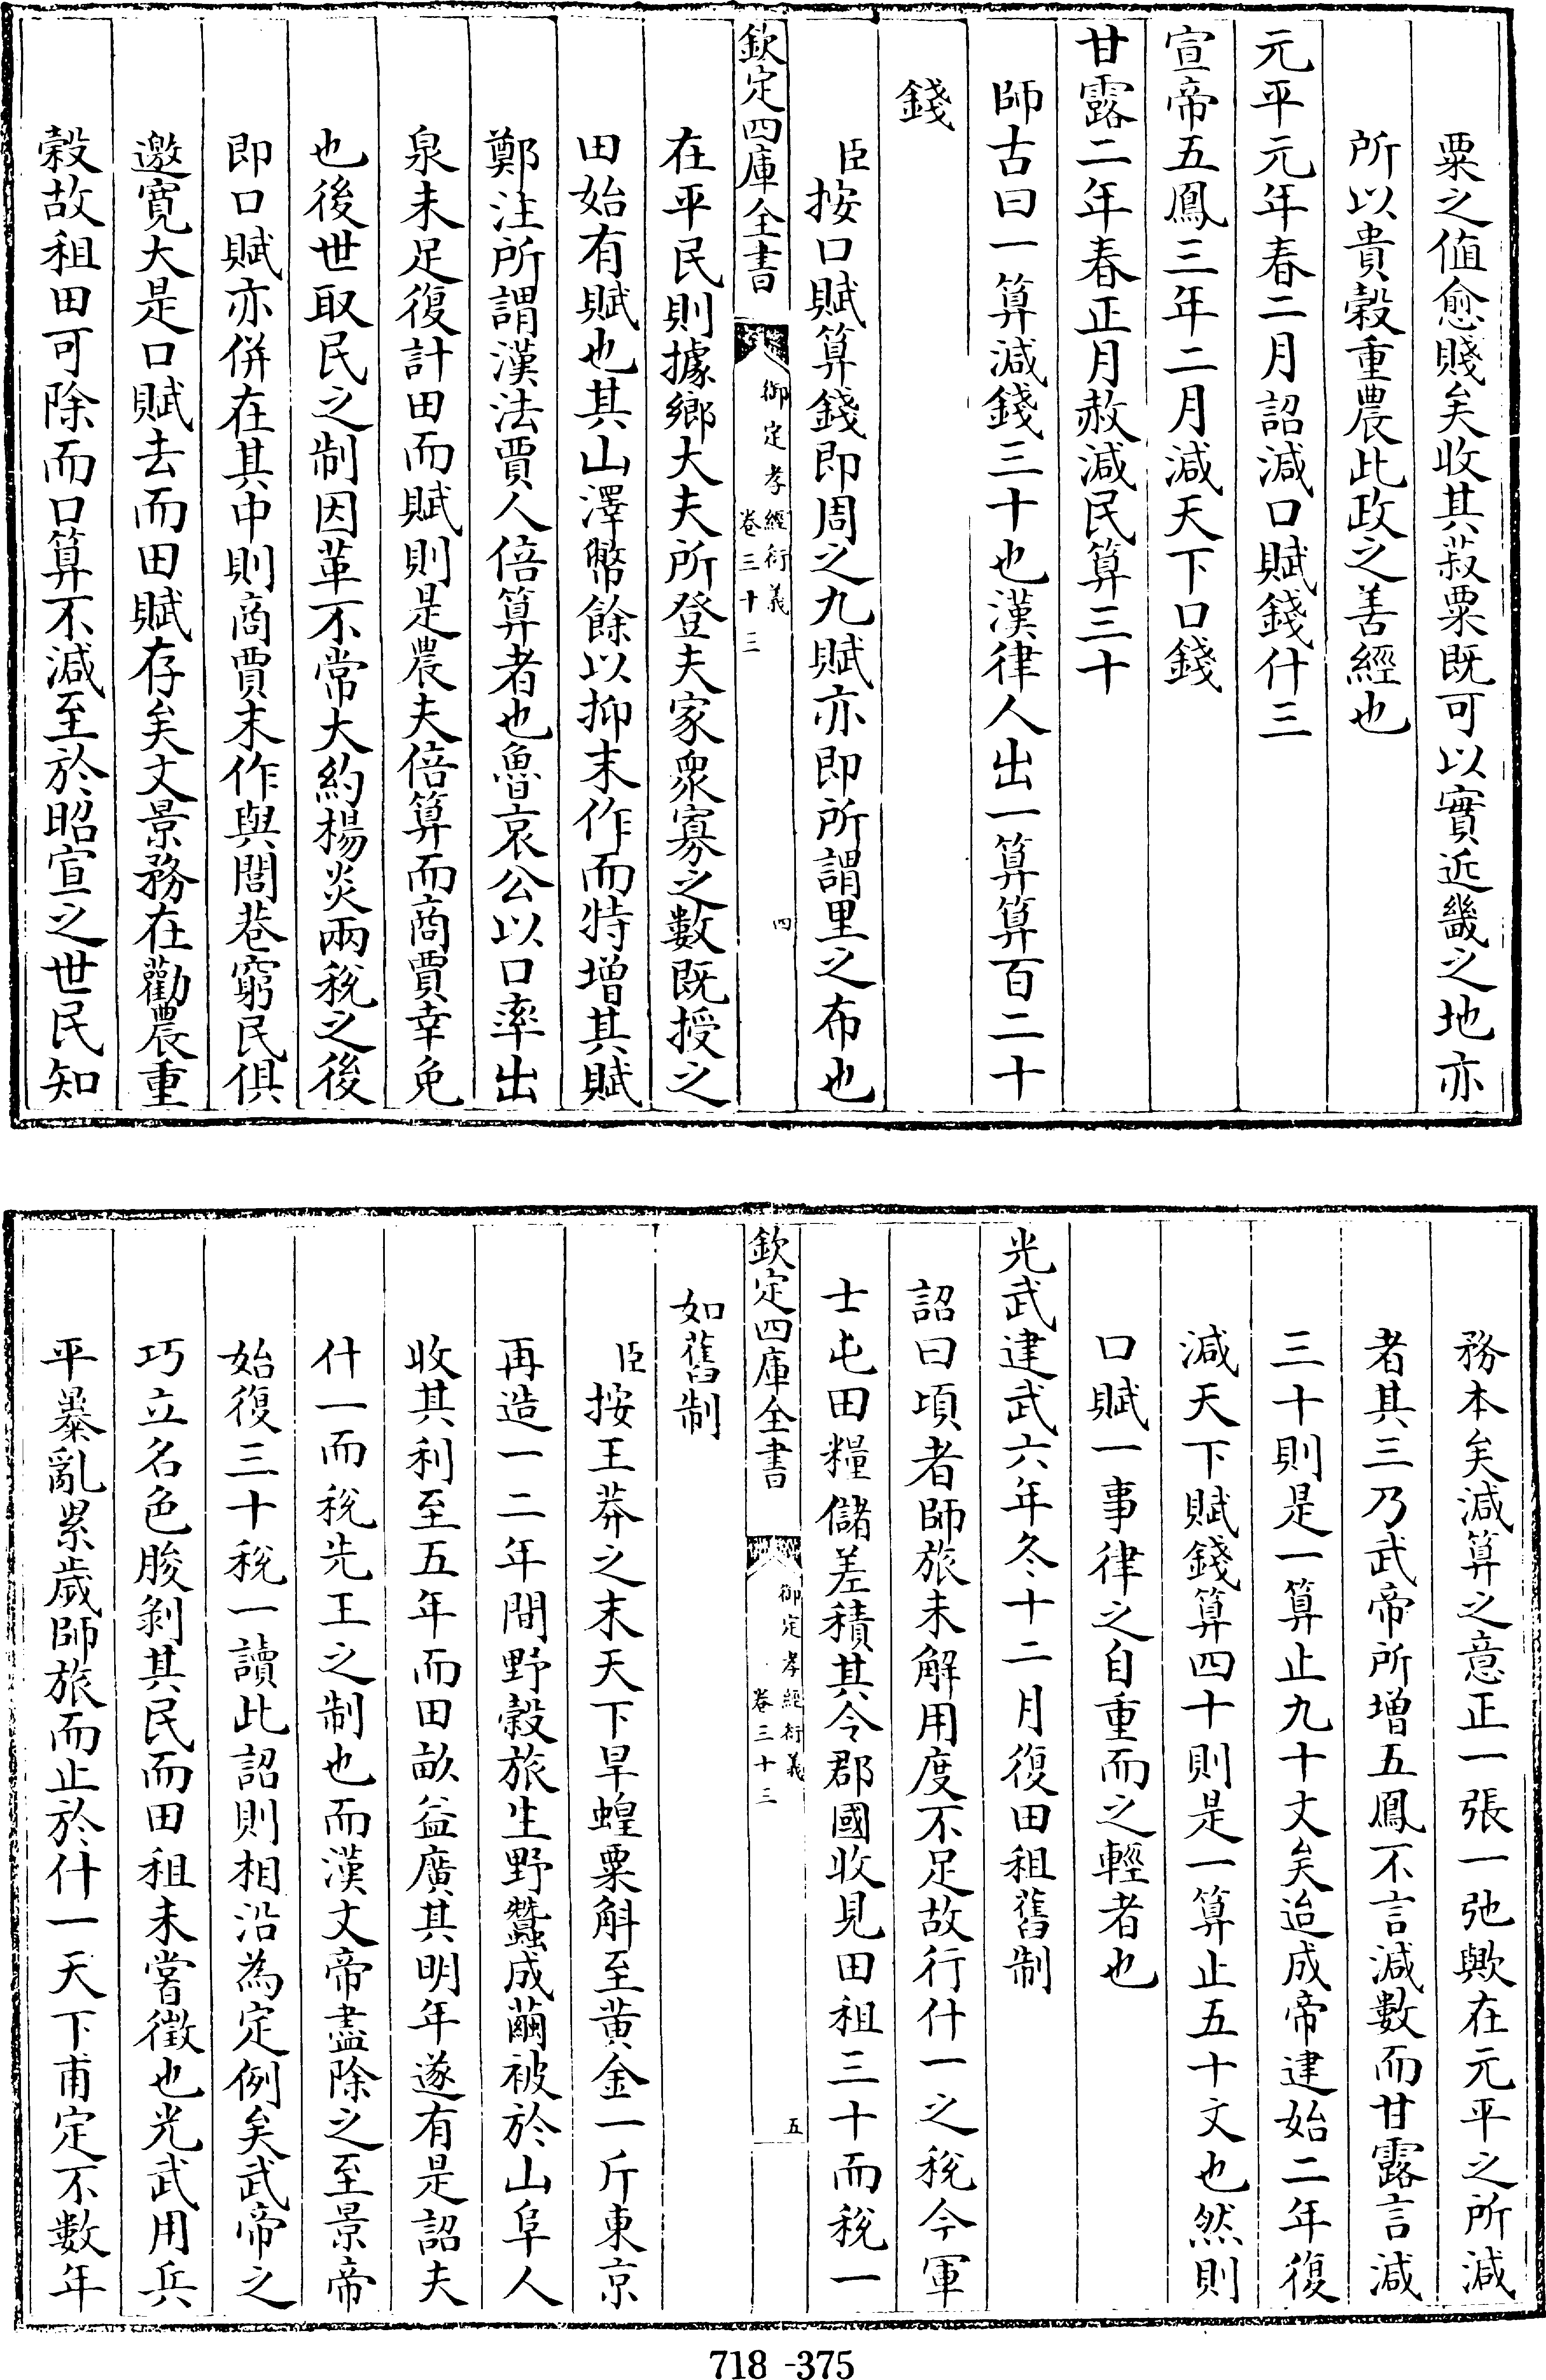 粟之值愈賤矣收其菽粟既可以實近畿之地亦
所以貴穀重農此政之善經也
元平元年春二月詔減口賦錢什三
宣帝五鳳三年二月減天下口錢
甘露二年春正月赦減民算三十
師古曰一算減錢三十也漢律人出一算算百二十
錢
臣按口賦算錢即周之九賦亦即所謂里之布也
欽定四庫全書
御定孝經衍義
卷三十三
四
在平民則據鄉大夫所登夫家衆寡之數既授之
田始有賦也其山澤幣餘以抑末作而特增其賦
鄭注所謂漢法賈人倍算者也魯哀公以口率出
泉未足復計田而賦則是農夫倍算而商賈幸免
也後世取民之制因革不常大約楊炎兩稅之後
即口賦亦併在其中則商賈末作與閭巷窮民俱
邀寬大是口賦去而田賦存矣文景務在勸農重
穀故租田可除而口算不減至於昭宣之世民知
務本矣減算之意正一張一弛歟在元平之所減
者其三乃武帝所增五鳳不言減數而甘露言減
三十則是一算止九十文矣迨成帝建始二年復
減天下賦錢算四十則是一算止五十文也然則
口賦一事律之自重而之輕者也
光武建武六年冬十二月復田租舊制
詔曰頃者師旅未解用度不足故行什一之稅今軍
士屯田糧儲差積其令郡國收見田租三十而稅一
欽定四庫全書
御定孝經衍義
卷三十三
五
如舊制
臣按王莽之末天下旱蝗粟斛至黄金一斤東京
再造一二年間野穀旅生野蠶成繭被於山阜人
收其利至五年而田畝益廣其明年遂有是詔夫
什一而稅先王之制也而漢文帝盡除之至景帝
始復三十稅一讀此詔則相沿為定例矣武帝之
巧立名色朘剝其民而田租未嘗徵也光武用兵
平暴亂累歲師旅而止於什一天下甫定不數年
718-375